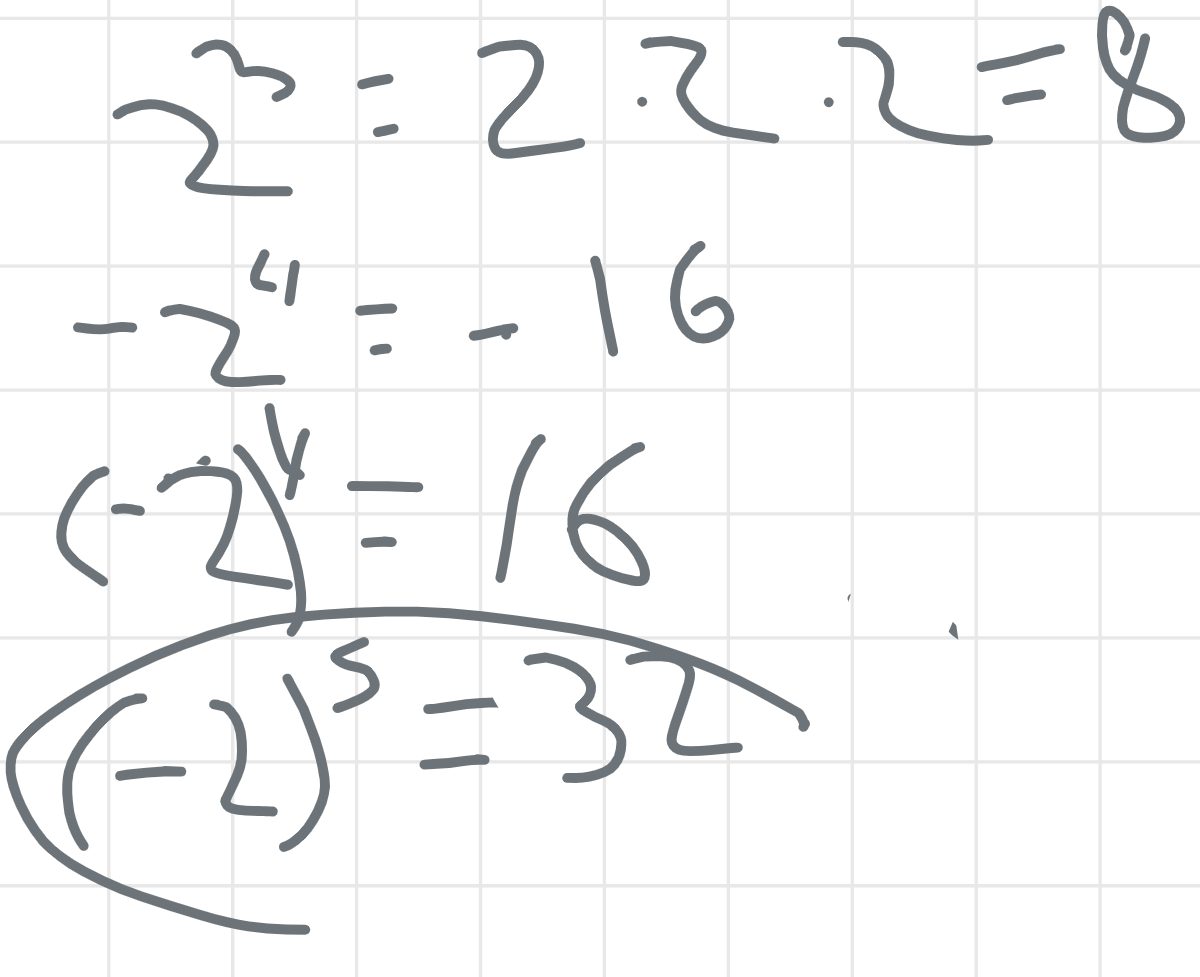 2³ = 2 · 2 · 2 = 8
-2⁴ = -16
(-2)⁴ = 16
(-2)⁵ = 32